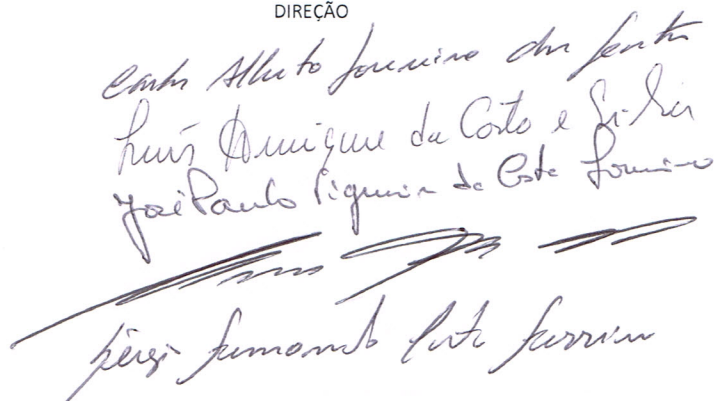 DIREÇÃO
Carlos Alberto Loureiro dos Santos
Luís Henrique da Costa e Silva
José Paulo Figueira da Costa Loureiro
Sérgio Fernando Costa Ferreira